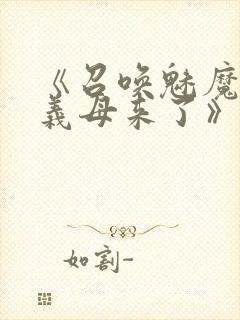 《召唤魅魔
義母来了》
如割-